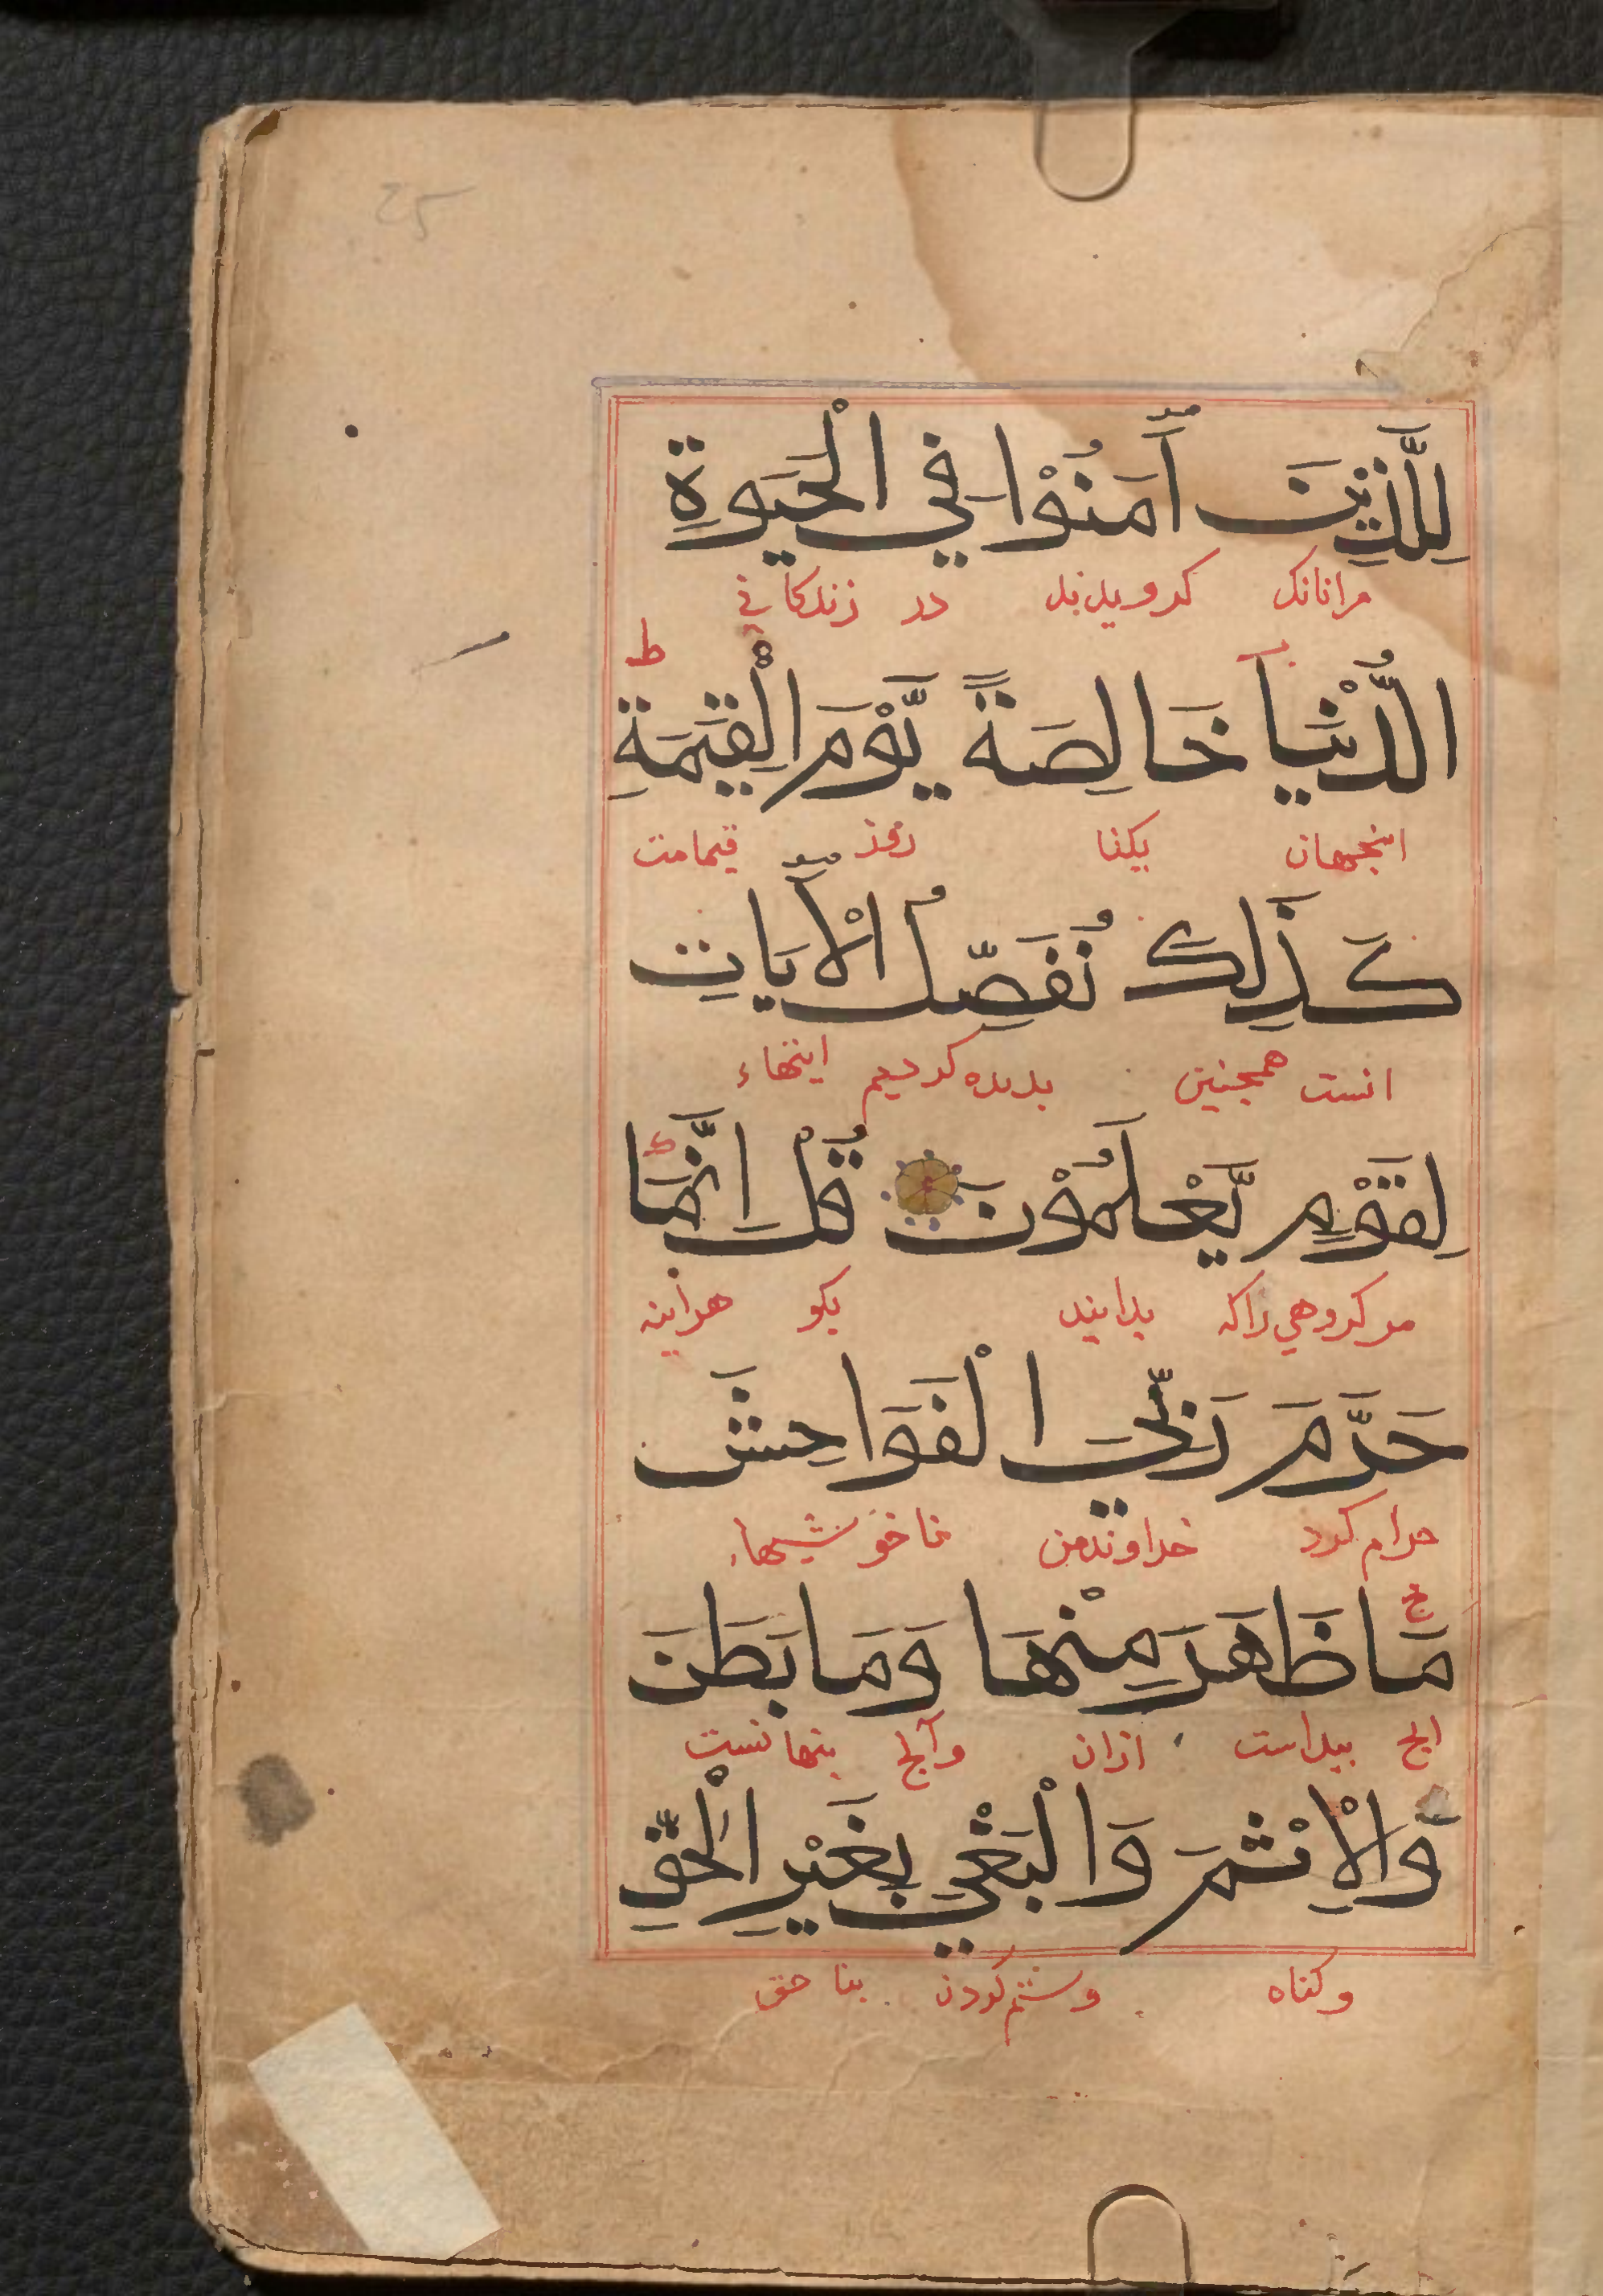 25
لِلَّذِيْنَ اٰمَنُوْا فِي الْحَيٰوةِ
مرانانك كرويدند در زندكاني
ط
الدُّنْيَا خَالِصَةً يَّوْمَ الْقِيٰمَةِ
اينجهان يكتا روز قيامت
كَذٰلِكَ نُفَصِّلُ الْاٰيَاتِ
انست همجنين بديده كرديم ايتهاء
لِقَوْمٍ يَّعْلَمُوْنَ قُلْ اِنَّمَا
مر كروهي راكه بدانند بكو هراينه
حَرَّمَ رَبِّيَ الْفَوَاحِشَ
حرام كرد خداوند من ناخوشيهاء
مَا ظَهَرَ مِنْهَا وَمَا بَطَنَ
انج بيداست ازان وآنج بنهانست
وَالْاِثْمَ وَالْبَغْيَ بِغَيْرِ الْحَقِّ
وكناه وستم كردن بنا حق